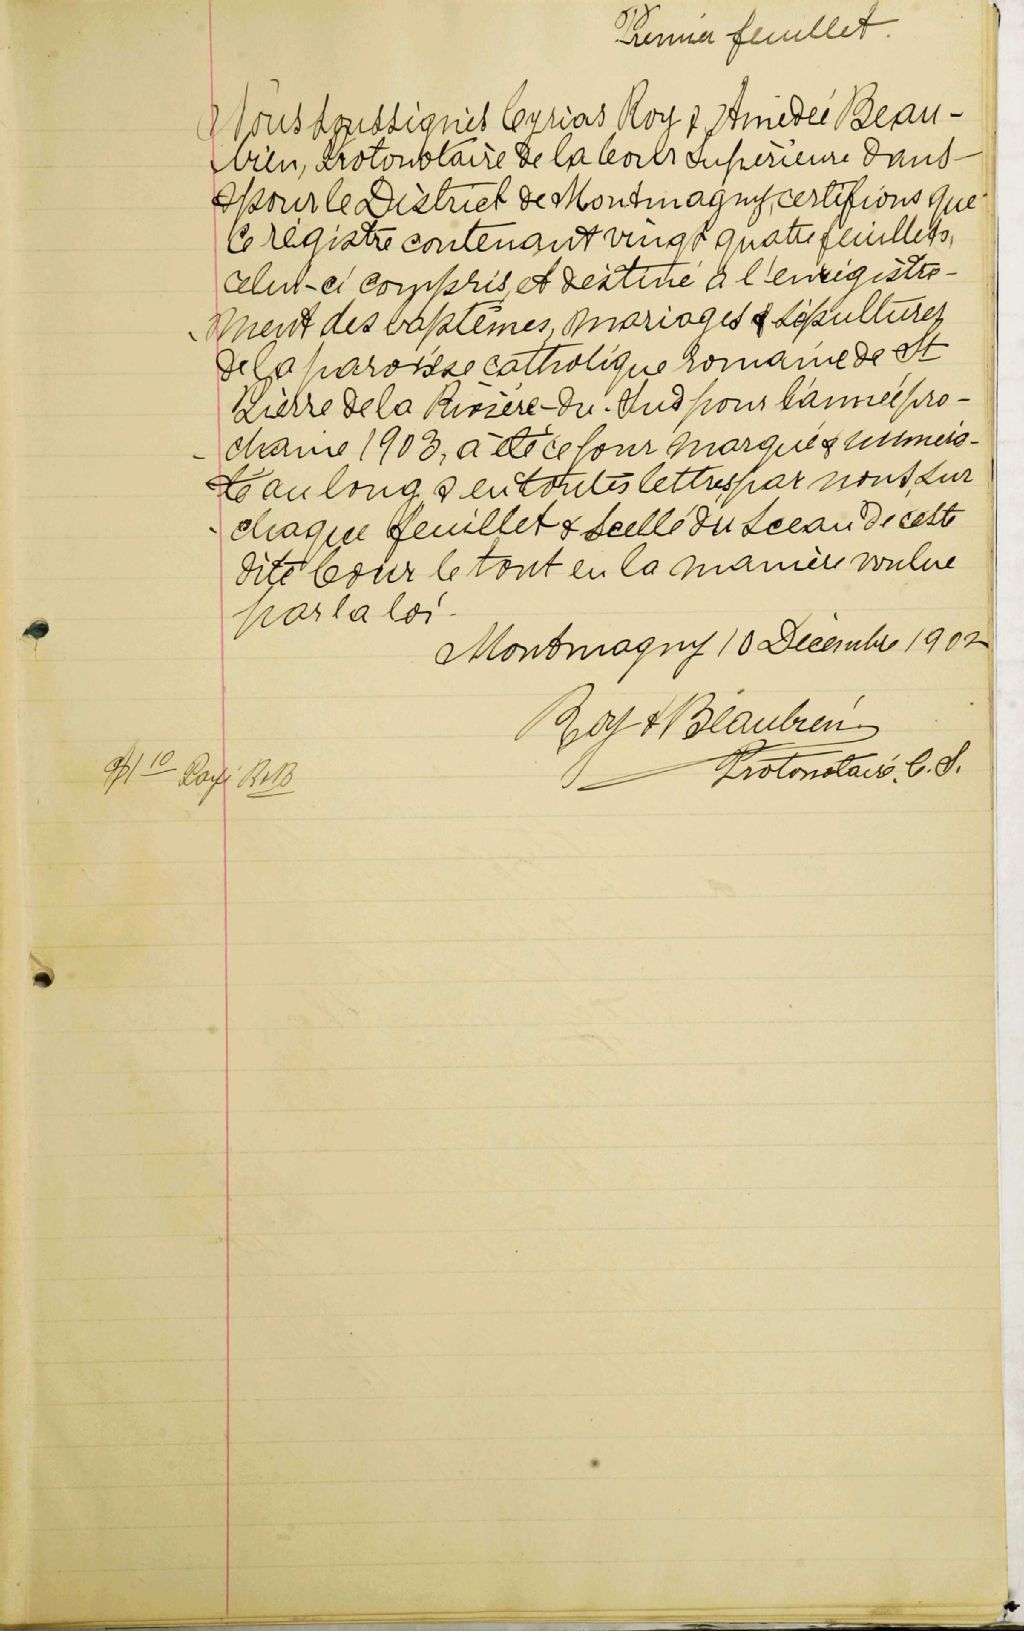 Premier feuillet.
Nous soussignés Cyrias Roy & Amédée Beau-
bien, Protonotaire de la Cour Supérieure dans
& pour le District de Montmagny, certifions que
ce régistre contenant vingt quatre feuillets,
celui-ci compris, et destiné à l'enrégistre-
ment des baptêmes, mariages & sépultures
de la paroisse catholique romaine de St
Pierre de la Rivière-du-Sud pour l'année pro-
chaine 1903, a été ce jour marqué & numéro-
té au long & en toutes lettres par nous, sur
chaque feuillet & scellé du sceau de cette
dite Cour le tout en la manière voulue
par la loi.
Montmagny 10 Décembre 1902
Roy & Beaubien
Protonotaire, C. S.
$1 10 Payé R&B